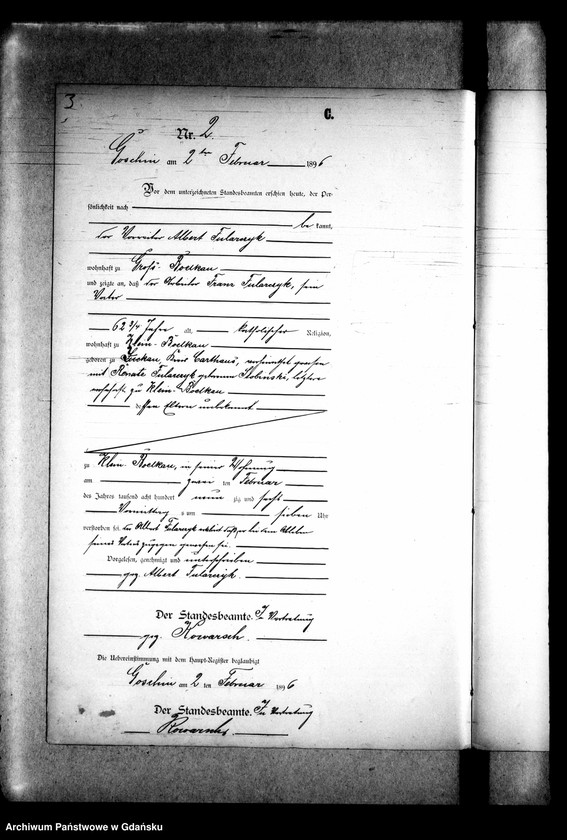 3.
C.
Nr. 2
Goschin am 2 ten Februar 1896
Vor dem unterzeichneten Standesbeamten erschien heute, der Per-
sönlichkeit nach
be kannt,
der Albert Tularczyk
wohnhaft zu Groß-Boelkau
und zeigte an, daß der Arbeiter Franz Tularczyk, sein
Vater
62 3/4 Jahre alt, katholischer Religion,
wohnhaft zu Klein-Boelkau
geboren zu Kreis Carthaus, verheirathet gewesen
mit Renate Tularczyk geborenen letztere
wohnhaft zu Klein-Boelkau
dessen Eltern unbekannt
zu Klein-Boelkau, in seiner Wohnung
am zwei ten Februar
des Jahres tausend acht hundert neun zig und sechs
Vormittags um sieben Uhr
verstorben sei. der Albert Tularczyk erklärt daß er bei dem Ableben
seines Vaters zugegen gewesen sei.
Vorgelesen, genehmigt und unterschrieben
gez. Albert Tularczyk.
Der Standesbeamte. In Vertretung
gez. Kowarsch.
Die Uebereinstimmung mit dem Haupt-Register beglaubigt
Goschin am 2 ten Februar 1896
Der Standesbeamte. In Vertretung
Kowarsch
Archiwum Państwowe w Gdańsku